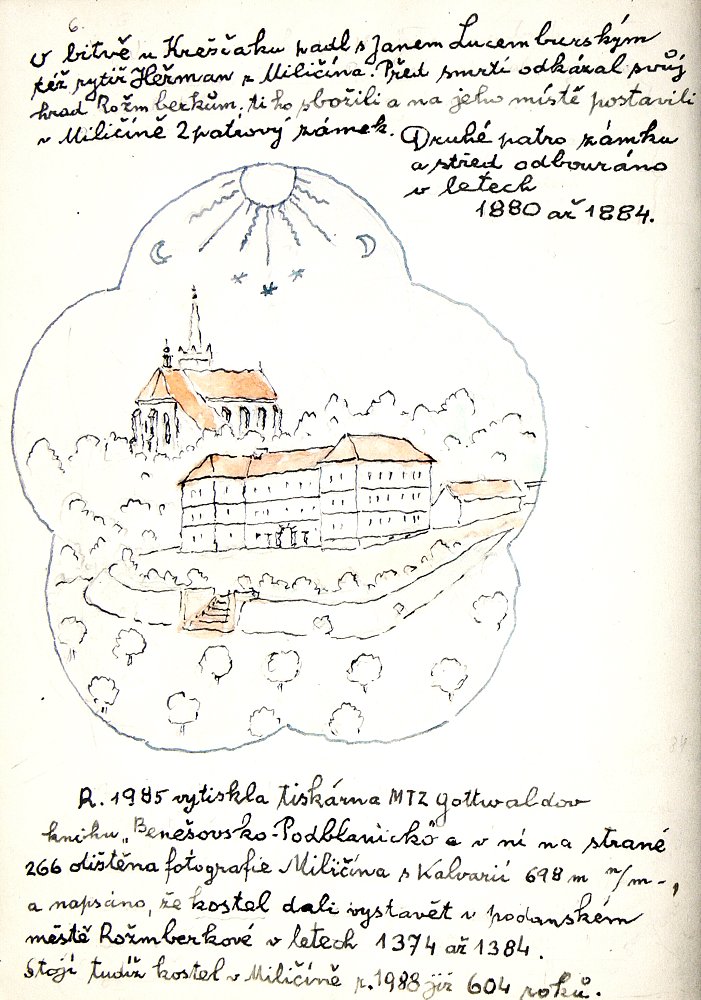 6.
V bitvě u Kreščaku padl s Janem Lucemburským
též rytíř Heřman z Miličína. Před smrtí odkázal svůj
hrad Rožmberkům, ti ho sbořili a na jeho místě postavili
v Miličíně 2patrový zámek.
Druhé patro zámku
a střed odbouráno
v letech
1880 až 1884.
R. 1985 vytiskla tiskárna MTZ Gottwaldov
knihu „Benešovsko-Podblanicko" a v ní na straně
266 otištěna fotografie Miličína s Kalvarií 698 m n/m -,
a napsáno, že kostel dali vystavět v poddanském
městě Rožmberkové v letech 1374 až 1384.
Stojí tudíž kostel v Miličíně r. 1988 již 604 roků.